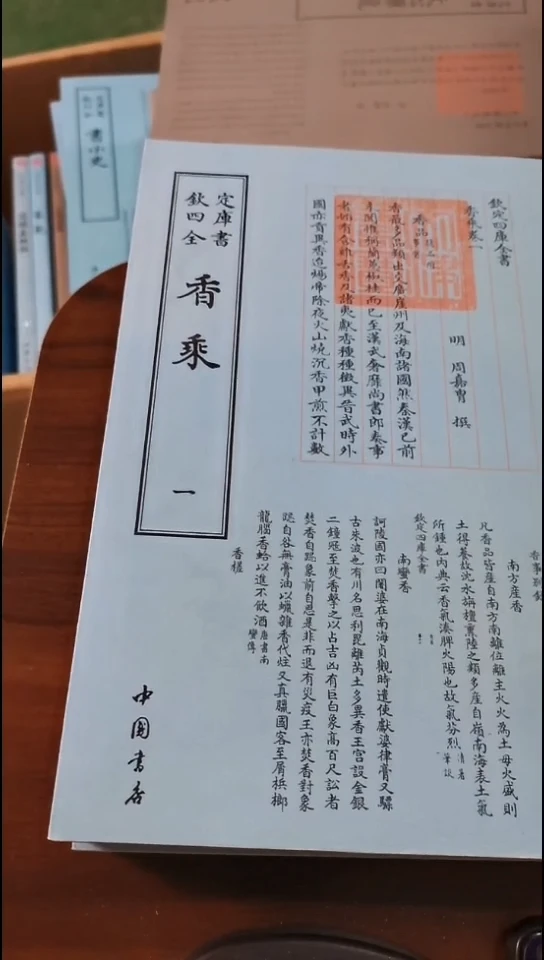 欽定四庫全書
香乘
一
中國書店
欽定四庫全書
香乘卷一
明 周嘉胄 撰
香品
香最多品類出交廣崖州及海南諸國然秦漢已前
未聞惟稱蘭蕙椒桂而已至漢武奢靡尚書郎奏事
者始有含雞舌香及諸夷獻香種種徵異晉武時外
國亦貢異香迨煬帝除夜火山燒沉香甲煎不計數
南方產香
凡香品皆產自南方南離位離主火火為土母火盛則
土得養故沈水旃檀熏陸之類多產自嶺南海表土氣
所鍾也內典云香氣湊脾火陽也故氣芬烈
欽定四庫全書
南蠻香
訶陵國亦曰闍婆在南海貞觀時遣使獻婆律膏又驃
古朱波也有川名思利毘離芮土多異香王宮設金銀
二鐘冦至焚香擊之以占吉凶有巨白象高百尺訟者
焚香自跽象前自思是非而退有災疫王亦焚香對象
跽自咎無膏油以蠟雜香代炷又真臘國客至屑梹榔
龍腦香蛤以進不飲酒唐書南蠻傳
香槎